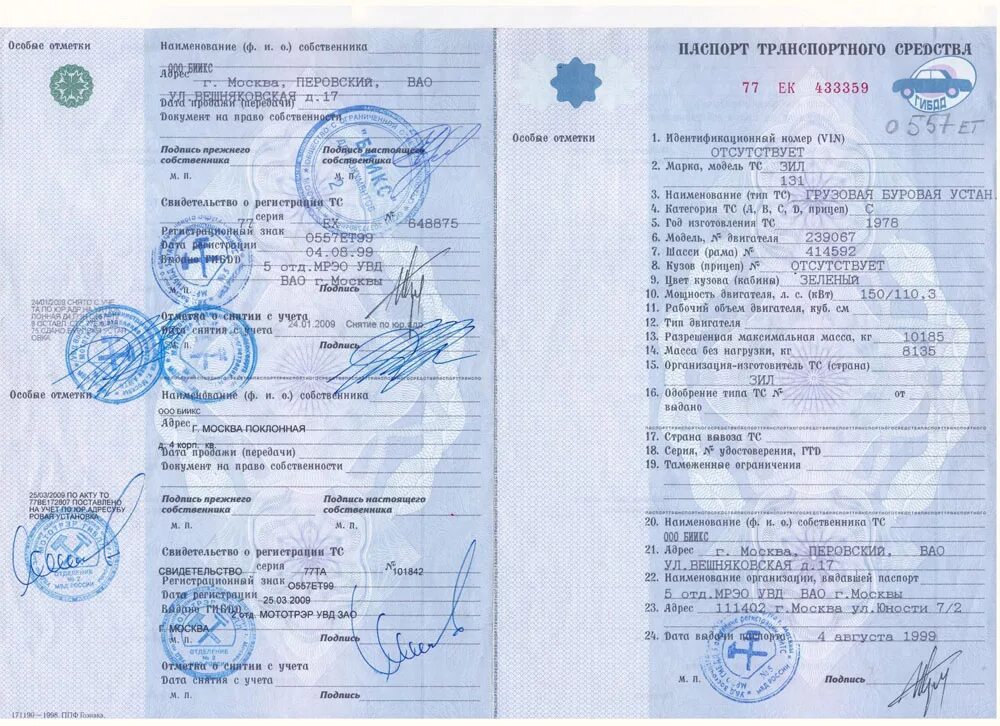 Особые отметки
Наименование (ф. и. о.) собственника
ООО БИИКС
Адрес
г. Москва, ПЕРОВСКИЙ, ВАО
УЛ.ВЕШНЯКОВСКАЯ д.17
Дата продажи (передачи)
Документ на право собственности
Подпись прежнего собственника
Подпись настоящего собственника
М. П.
М. П.
Свидетельство о регистрации ТС
77 серия ЕХ № 648875
Регистрационный знак О557ЕТ99
Дата регистрации 04.08.99
Выдано ГИБДД 5 отд.МРЭО УВД
ВАО г.Москвы
М. П.
Подпись
24/01/2009 СНЯТО С УЧЕ
Отметка о снятии с учета
Дата снятия с учета 24.01.2009 Снятие по юр.адр
М. П.
Подпись
Особые отметки
Наименование (ф. и. о.) собственника
ООО БИИКС
Адрес Г. МОСКВА ПОКЛОННАЯ
д. 4 корп. кв.
Дата продажи (передачи)
Документ на право собственности
25/03/2009 ПО АКТУ ТО
77ВЕ172807 ПОСТАВЛЕНО
НА УЧЕТ ПО ЮР.АДРЕСУБУ
РОВАЯ УСТАНОВКА
Подпись прежнего собственника
Подпись настоящего собственника
М. П.
М. П.
Свидетельство о регистрации ТС
СВИДЕТЕЛЬСТВО серия 77ТА № 101842
Регистрационный знак О557ЕТ99
Дата регистрации 25.03.2009
Выдано ГИБДД 2 отд. МОТОТРЭР УВД ЗАО
Г. МОСКВА
М. П.
Подпись
Отметка о снятии с учета
Дата снятия с учета
М. П.
Подпись
171190—1998. ППФ Гознака.
ПАСПОРТ ТРАНСПОРТНОГО СРЕДСТВА
77 ЕК 433359
ГИБДД
О 557 ЕТ
Особые отметки
1. Идентификационный номер (VIN)
ОТСУТСТВУЕТ
2. Марка, модель ТС ЗИЛ
131
3. Наименование (тип ТС) ГРУЗОВАЯ БУРОВАЯ УСТАН.
4. Категория ТС (А, В, С, D, прицеп) С
5. Год изготовления ТС 1978
6. Модель, № двигателя 239067
7. Шасси (рама) № 414592
8. Кузов (прицеп) № ОТСУТСТВУЕТ
9. Цвет кузова (кабины) ЗЕЛЕНЫЙ
10. Мощность двигателя, л. с. (кВт) 150/110.3
11. Рабочий объем двигателя, куб. см
12. Тип двигателя
13. Разрешенная максимальная масса, кг 10185
14. Масса без нагрузки, кг 8135
15. Организация-изготовитель ТС (страна)
ЗИЛ
16. Одобрение типа ТС № от
выдано
17. Страна вывоза ТС
18. Серия, № удостоверения, ГТД
19. Таможенные ограничения
20. Наименование (ф. и. о.) собственника ТС
ООО БИИКС
21. Адрес г. Москва, ПЕРОВСКИЙ, ВАО
УЛ.ВЕШНЯКОВСКАЯ д.17
22. Наименование организации, выдавшей паспорт
5 отд.МРЭО УВД ВАО г.Москвы
23. Адрес 111402 г.Москва ул.Юности 7/2
24. Дата выдачи паспорта 4 августа 1999
М. П.
Подпись